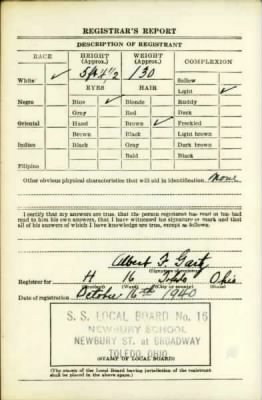 REGISTRAR'S REPORT
DESCRIPTION OF REGISTRANT
RACE HEIGHT (Approx.) WEIGHT (Approx.) COMPLEXION
White ✓ 5 ft 4 1/2 130 Sallow
EYES HAIR Light ✓
Negro Blue ✓ Blonde Ruddy
Gray Red Dark
Oriental Hazel Brown ✓ Freckled
Brown Black Light brown
Indian Black Gray Dark brown
Bald Black
Filipino
Other obvious physical characteristics that will aid in identification None
I certify that my answers are true; that the person registered has read or has had
read to him his own answers; that I have witnessed his signature or mark and that
all of his answers of which I have knowledge are true, except as follows:
Albert F.
(Signature of registrar)
Registrar for H 16 Toledo Ohio
(Precinct) (Ward) (City or county) (State)
Date of registration October 16th 1940
S. S. LOCAL BOARD No. 16
NEWBURY SCHOOL
NEWBURY ST. at BROADWAY
TOLEDO, OHIO
(STAMP OF LOCAL BOARD)
(The stamp of the Local Board having jurisdiction of the registrant
shall be placed in the above space.)